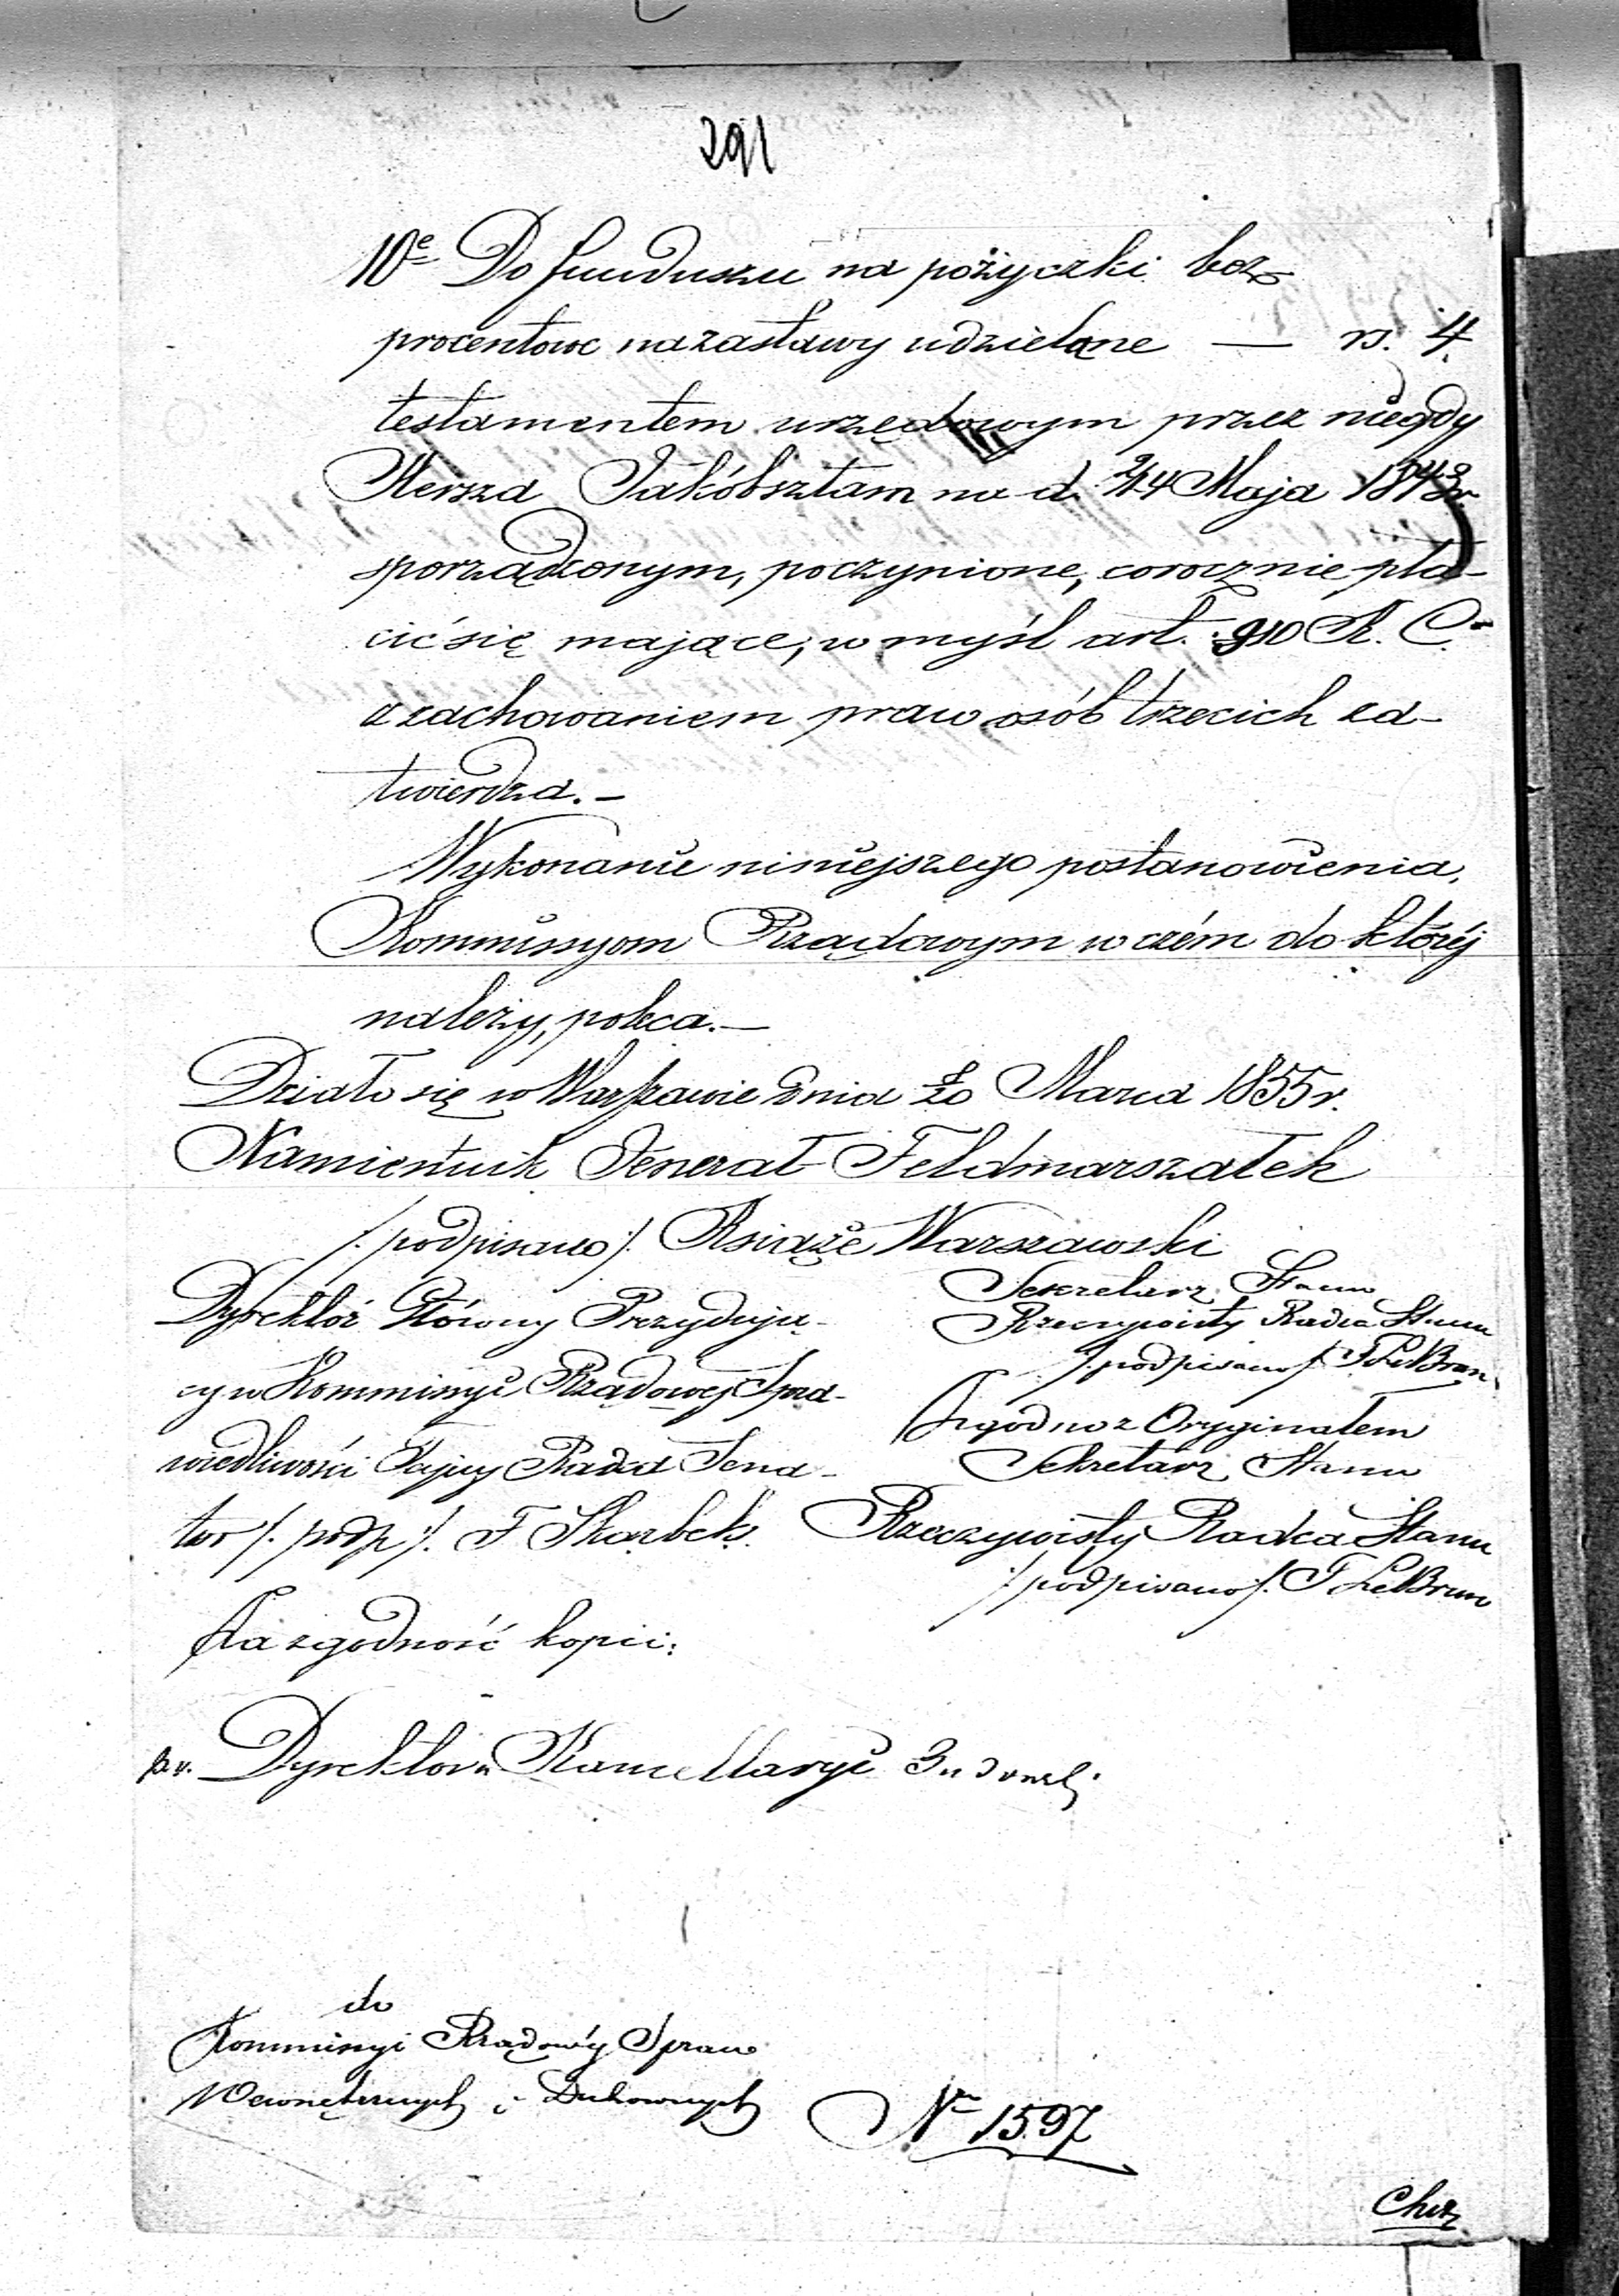 291
10e Do funduszu na pożyczki bez-
procentowe na zastawy udzielane — rs. 4.
testamentem urzędowym przez niegdy
Hersza Jakóbsztam na d. 2/14 Maja 1843 r.
sporządzonym, poczynione, corocznie pła-
cić się mające, w myśl art. 910 K. C.
z zachowaniem praw osób trzecich za-
twierdza.—
Wykonanie niniejszego postanowienia,
Kommissyom Rządowym w czém do któréj
należy, poleca.—
Działo się w Warszawie dnia 8/20 Marca 1855 r.
Namiestnik Jenerał-Feldmarszałek
/. podpisano /. Książe Warszawski
Dyrektor Główny Prezydują-
cy w Kommissyi Rządowej Spra-
wiedliwości Tajny Radca Sena-
tor /. podp /. F Skarbek.
Sekretarz Stanu
Rzeczywisty Radca Stanu
/. podpisano /. T Le Brun
Zgodno z Oryginałem
Sekretarz Stanu
Rzeczywisty Radca Stanu
/. podpisano /. T Le Brun
Za zgodność kopii:
Dyrektora Kancellaryi
do
Kommissyi Rządowéj Spraw
Wewnętrznych i Duchownych
Nr 1597